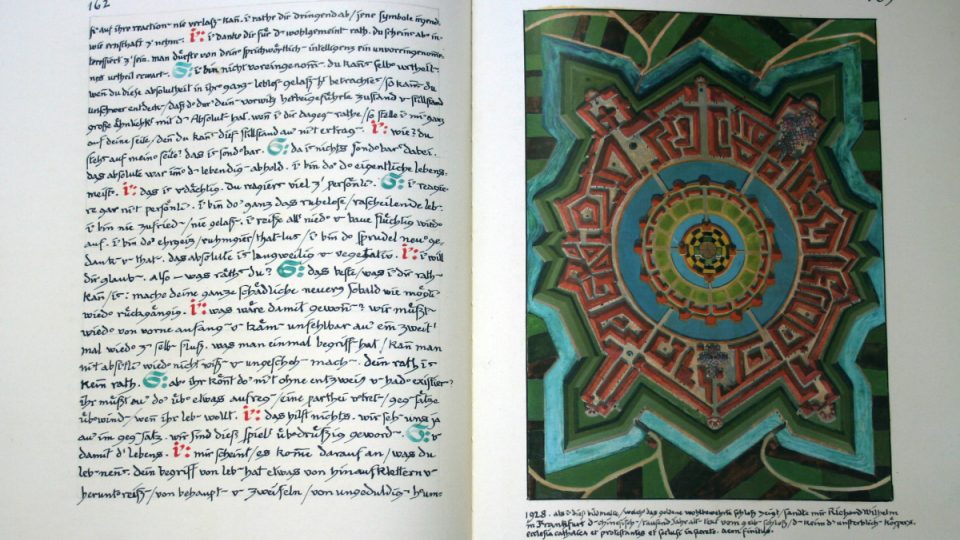 162
auf ihr reaction nie verlaß kan. i rathe dir dringend ab / jene symbole irgend-
wie ernsthaft z' nehm. i: i danke dir für d' wohlgemeint rath. du scheinst ab' in-
teressiert z' sein. man dürfte von dein' sprichwörtlich intelligenz ein unvoreingenom-
nes urtheil erwart. S: i bin nicht voreingenom. du kan' selb' urtheil.
wen du diese absolutheit in ihr' ganz leblos gelaß betrachtest / so kan' du
unschwer entdeck / daß d' dur' dein vorwitz herbeigeführte zustand v stillstand
große ähnlichk' mit d' Absolut hat. wen i dir dageg' rathe / so stelle i mi ganz
auf deine seite / den du kan' dieß stillstand au' ni't ertrag. i: wie? du
stehst auf meine seite? das is' sonderbar. S: da is nichts sonderbar' dabei.
das absolute war im' d' lebendig abhold. i bin do' d' eigentliche lebens-
meist. i: das is' verdächtig. du reagiers' viel z' persönli. S: i reagie-
re gar ni't persönli. i bin do' ganz das ruhelose / rascheilende leb.
i bin nie zufried / nie gelaß. i reiße all' nied' v baue flüchtig wied'
auf. i bin do' ehrgeiz / ruhmgier / that-lust / i bin d' sprudel neu' ge-
dank v that. das absolute is' langweilig v vegetativ. i: i will
dir glaub. Also – was räths' du? S: das beste / was i dir rath
kan / is': mache deine ganze schädliche neuerg sobald wie mögli
wied' rückgängig. i: was wäre damit gewon? wir müßt
wied' von vorne anfang v käm' unfehlbar au' ein zweit'
mal wied' z' selb' sluß. was man einmal begriff hat / kan man
ni't absitli wied' nicht wiß v ungescheh mach. dein rath is'
kein rath. S: ab' ihr könt do' ni't ohne entzweig v had' existier?
ihr müßt au' do' üb' etwas aufreg / eine parthei vertret / geg'sätze
überwind / wen ihr leb' wollt. i: das hilft nichts. wir seh' uns ja
au' im geg'satz. wir sind dieß spiels überdrüßig geword. S: v
damit d' lebens. i: mir scheint / es kome darauf an / was du
leb' nens'. dein begriff von leb' hat etwas von hinaufklettern v
herunterreiß / von behaupt v zweifeln / von ungeduldig herum-
1928. als i dieß bild malte / welch' das goldene wohlbewehrte schloß zeigt / sandte mir Richard Wilhelm
in Frankfurt d' chinesisch / tausend jahre alt' text vom gelb' schloß / d' keim d' unsterblich körpers.
ecclesia catholica et protestantes et seclusi in secreto. aeon finitus.